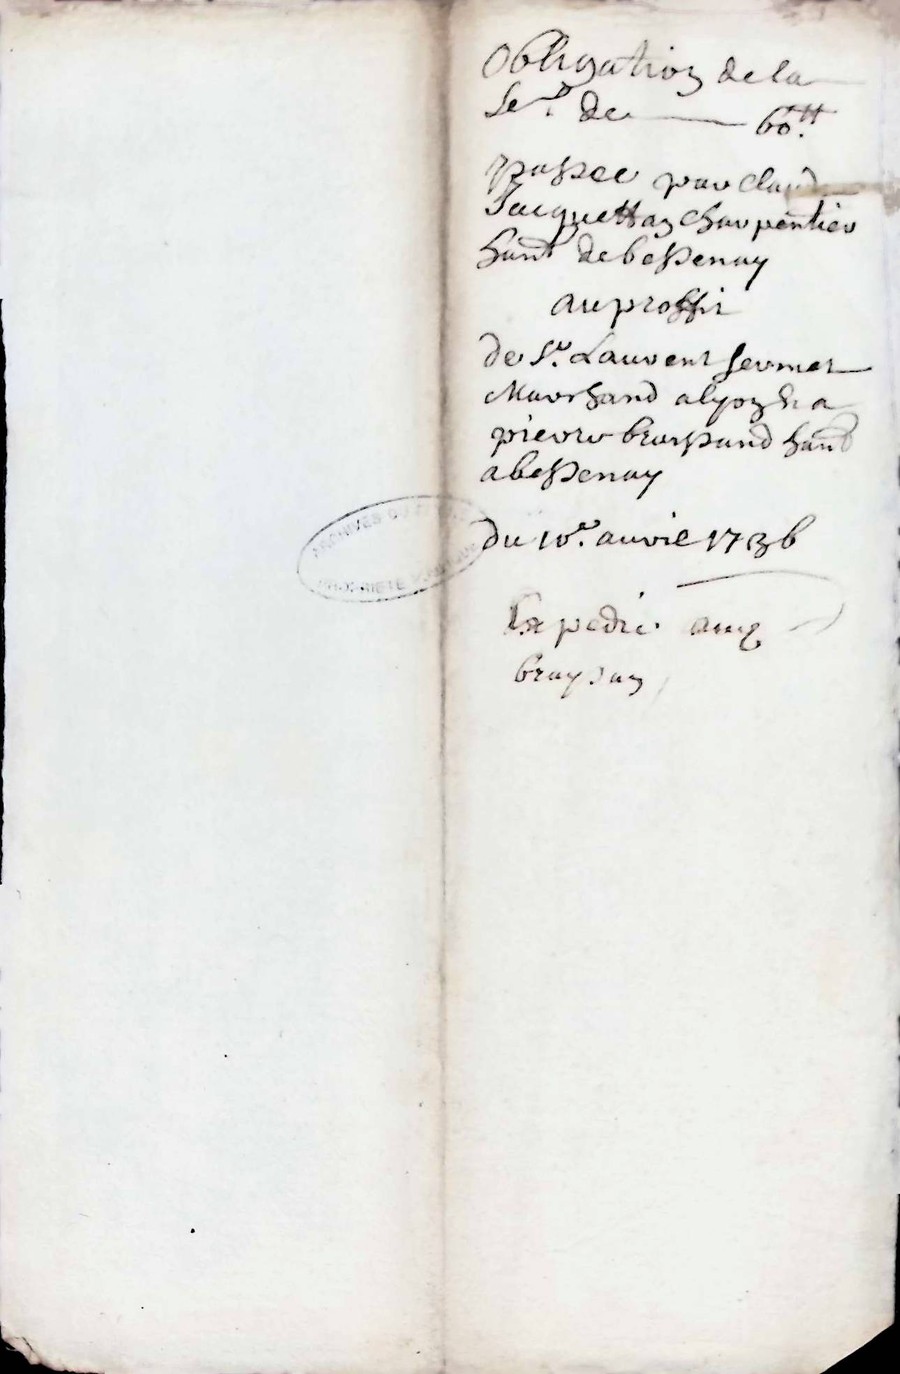 Obligation de la
Se.e de 60.tt
passee par claude
Jacquettaz charpentier
hant. de bessenay
au proffit
de Sr. Laurent fermet
Marchand a lyon & a
pierre brossand hant
a bessenay
du 10e. avril 1736
Expedié aux
ARCHIVES DU
PROPRIETE PUBLIQUE